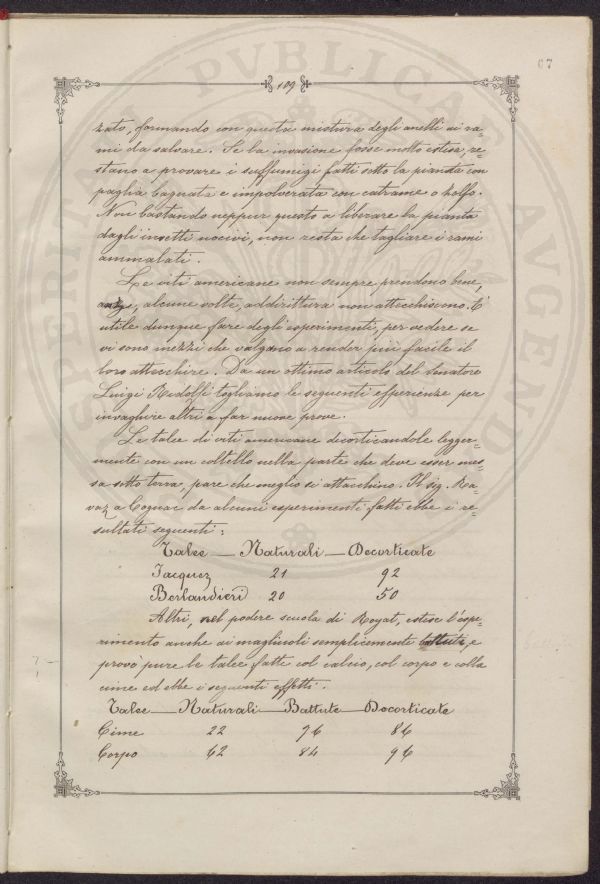 67
109
zato, formando con questa mistura degli anelli ai ra-
mi da salvare. Se la invasione fosse molto estesa, re-
stano a provare i suffumigi fatti sotto la pianta con
paglia bagnata e impolverata con catrame o zolfo.
Non bastando neppur questo a liberare la pianta
dagli insetti nocivi, non resta che tagliare i rami
ammalati.
Le viti americane non sempre prendono bene,
anzi, alcune volte, addirittura non attecchiscono. È
utile dunque fare degli esperimenti, per vedere se
vi sono mezzi che valgano a render più facile il
loro attecchire. Da un ottimo articolo del Senatore
Luigi Ridolfi togliamo le seguenti esperienze per
invaghire altri a far nuove prove.
Le talee di viti americane decorticandole legger-
mente con un coltello nella parte che deve esser mes-
sa sotto terra, pare che meglio si attacchino. Il sig. Ra-
vaz a Cognac da alcuni esperimenti fatti ebbe i re-
sultati seguenti:
Talee — Naturali — Decorticate
Jacquez 21 92
Berlandieri 20 50
Altri, nel podere scuola di Royat, estese l'espe-
rimento anche ai magliuoli semplicemente battuti, e
provò pure le talee fatte col calcio, col corpo e colla
cime ed ebbe i seguenti effetti.
Talee — Naturali — Battute — Decorticate
Cime 22 76 86
Corpo 62 84 96